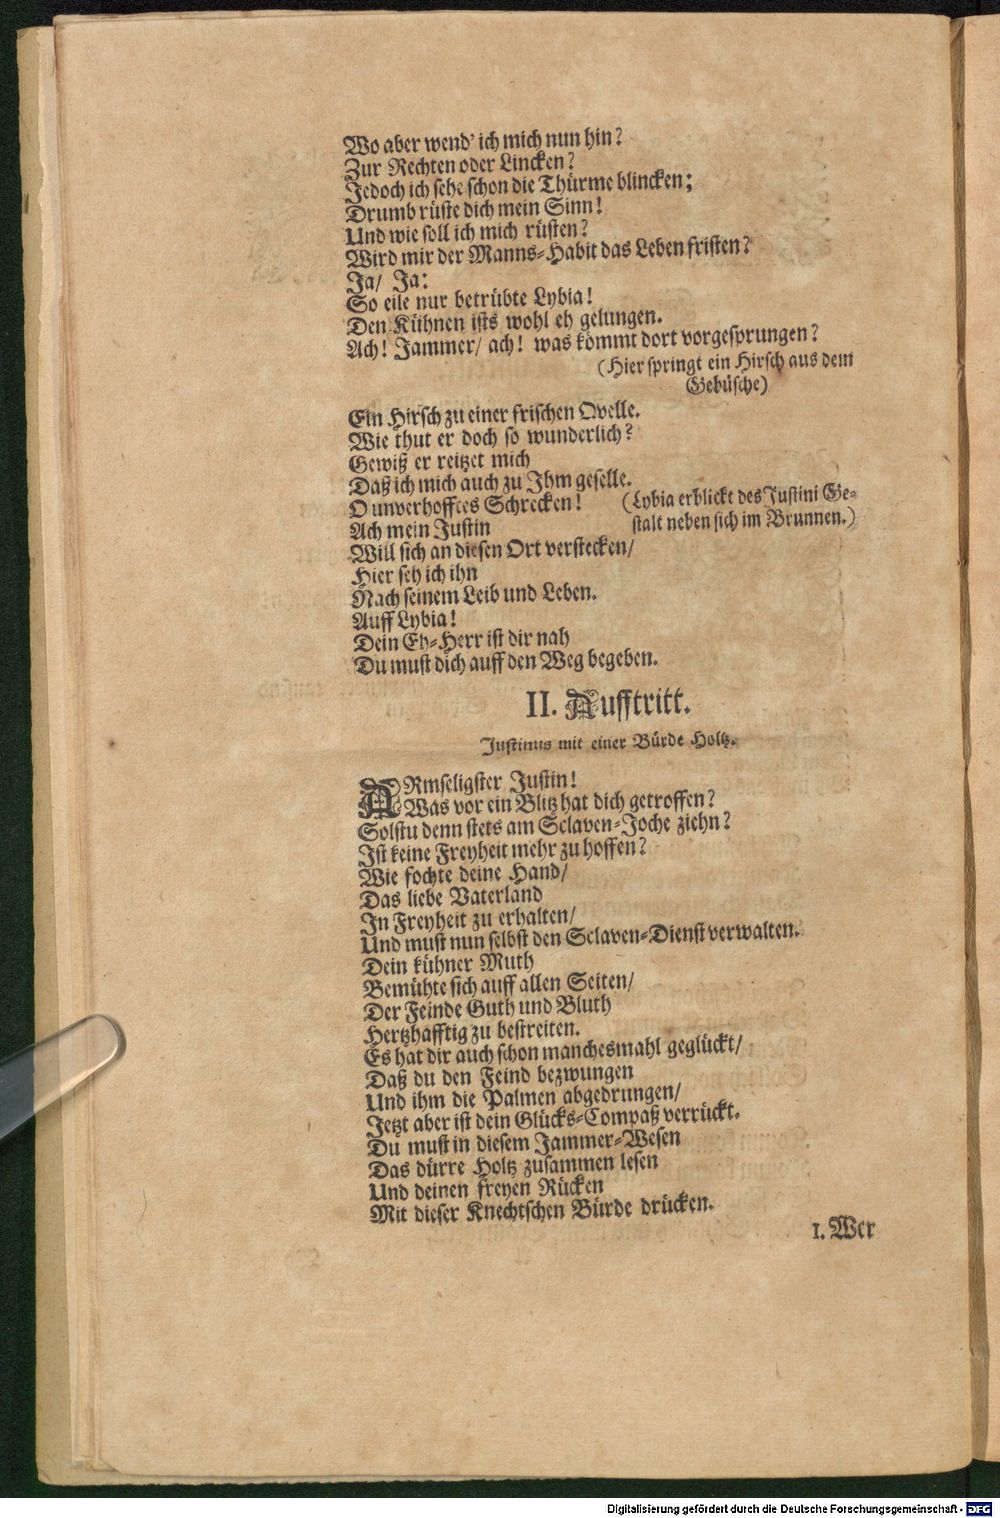 Wo aber wend' ich mich nun hin?
Zur Rechten oder Lincken?
Jedoch ich sehe schon die Thürme blincken;
Drumb rüste dich mein Sinn!
Und wie soll ich mich rüsten?
Wird mir der Manns-Habit das Leben fristen?
Ja/ Ja:
So eile nur betrübte Lybia!
Den Kühnen ists wohl eh gelungen.
Ach! Jammer/ ach! was kömmt dort vorgesprungen?
(Hier springt ein Hirsch aus dem
Gebüsche)
Ein Hirsch zu einer frischen Qvelle.
Wie thut er doch so wunderlich?
Gewiß er reitzet mich
Daß ich mich auch zu Ihm geselle.
O unverhofftes Schrecken! (Lybia erblickt des Justini Ge-
Ach mein Justin stalt neben sich im Brunnen.)
Will sich an diesen Ort verstecken/
Hier seh ich ihn
Nach seinem Leib und Leben.
Auff Lybia!
Dein Eh-Herr ist dir nah
Du must dich auff den Weg begeben.
II. Aufftritt.
Justinus mit einer Bürde Holtz.
ARmseligster Justin!
Was vor ein Blitz hat dich getroffen?
Solstu denn stets am Sclaven-Joche ziehn?
Ist keine Freyheit mehr zu hoffen?
Wie fochte deine Hand/
Das liebe Vaterland
In Freyheit zu erhalten/
Und must nun selbst den Sclaven-Dienst verwalten.
Dein kühner Muth
Bemühte sich auff allen Seiten/
Der Feinde Guth und Bluth
Hertzhafftig zu bestreiten.
Es hat dir auch schon manchesmahl geglückt/
Daß du den Feind bezwungen
Und ihm die Palmen abgedrungen/
Jetzt aber ist dein Glücks-Compaß verrückt.
Du must in diesem Jammer-Wesen
Das dürre Holtz zusammen lesen
Und deinen freyen Rücken
Mit dieser Knechtschen Bürde drücken.
1. Wer
Digitalisierung gefördert durch die Deutsche Forschungsgemeinschaft - DFG